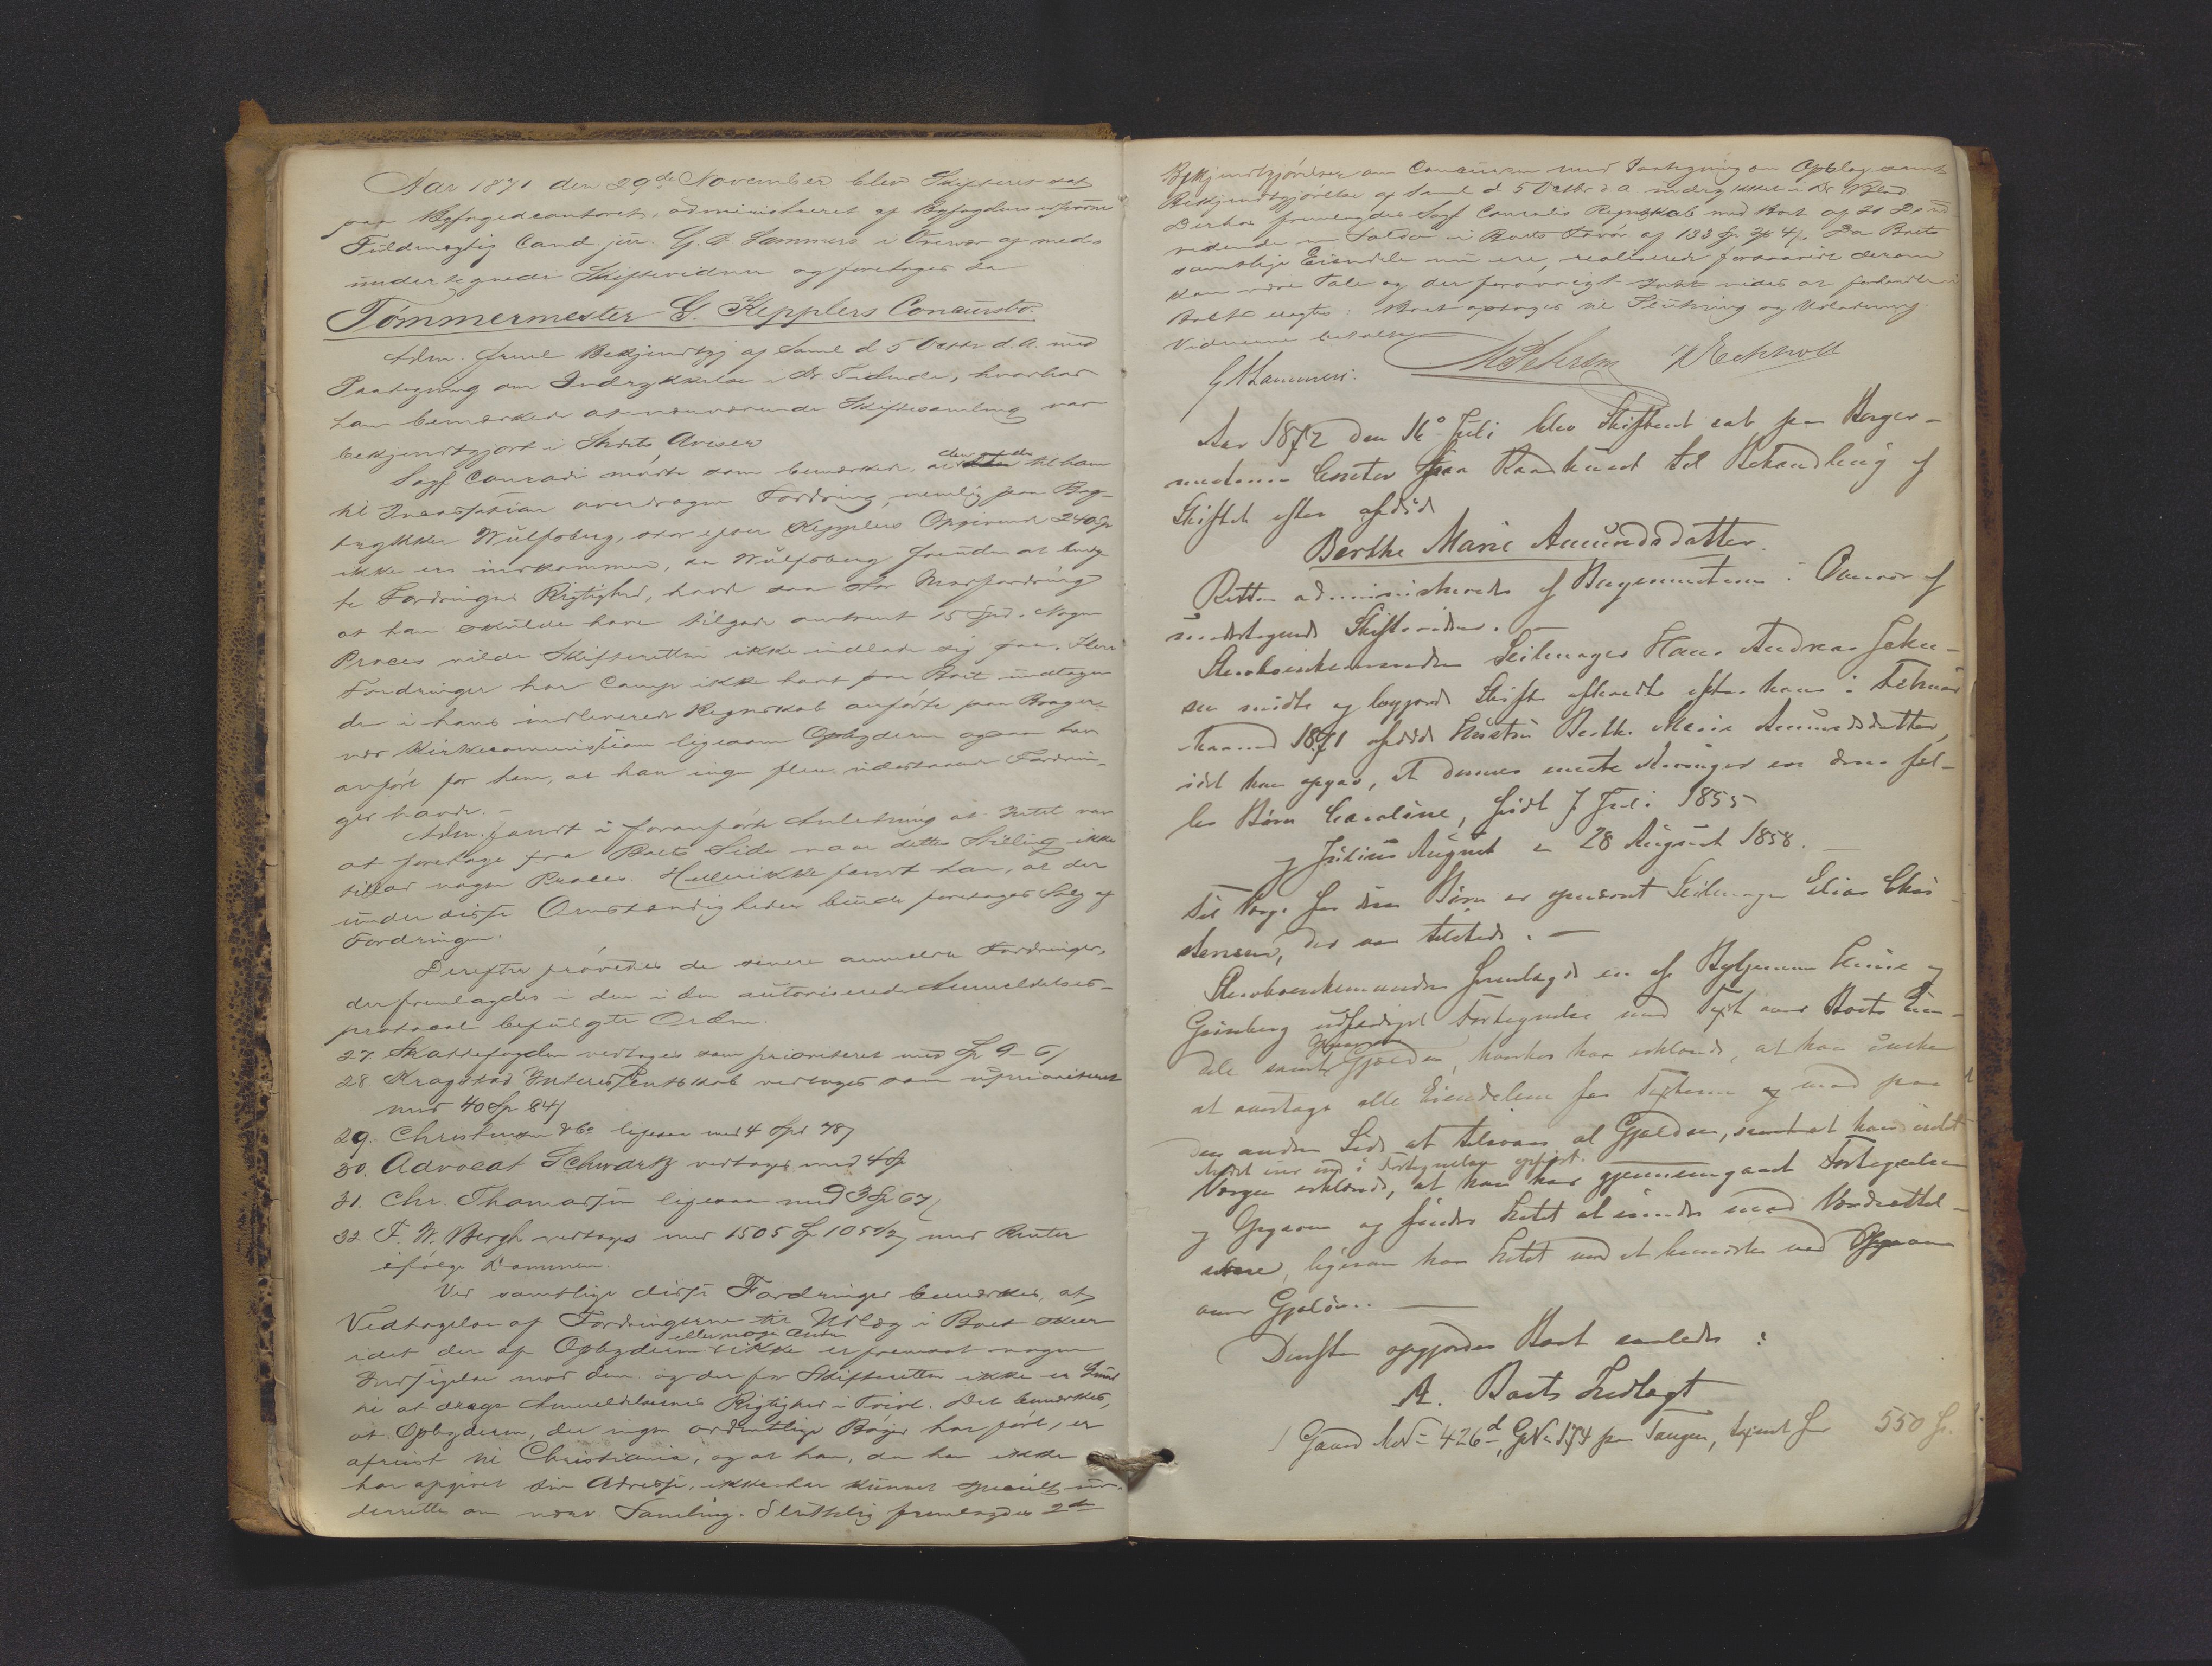 Aar 1871 den 29de November blev Skifteret sat
paa Byfogedcontoret, administreret af Byfogdens edsvorne
Fuldmægtig Cand. jur. G. A. Lammers i Overvær af med-
undertegnede Skiftevidner og foretoges da
Tømmermester G. Kepplers Concursbo.
Adm. freml. Bekjendtgj. af Saml. d 5 Octbr d. A. med
Paategning om Indrykkelse i Dr Tidende, hvorhos
han bemærkede at nærværende Skiftesamling var
bekjendtgjort i Stedets Aviser
Sagf Conradi mødte som bemærkede, at den ham
til Incassation overdragne Fordring, nemlig paa Bog-
trykker Wulfsberg, stor efter Kepplers Opgivende 240 Sp
ikke er indkommen, da Wulfsberg foruden at benæg-
te Fordringens Rigtighed, havde saa stor Modfordring
at han skulde have tilgode omtrent 15 Spd. Nogen
Proces vilde Skifteretten ikke indlade sig paa. Flere
Fordringer har Comp ikke havt paa Boet undtagen
de i hans indleverede Regnskab anførte paa Brager-
nes Kirkecommission ligesom Opbyderen ogsaa har
anført for ham, at han ingen flere udestaaende Fordrin-
ger havde. –
Adm. fandt i foranførte Anledning at Intet var
at foretage fra Boets Side naar dettes Stilling ikke
tillod nogen Proces. Heller ikke fandt han, at der
under disse Omstændigheder burde foretages Salg af
Fordringen.
Derefter prøvedes de senere anmeldte Fordringer,
der fremlagdes i den i den autoriserede Anmeldelses-
protocol befulgte Orden.
27 Skattefogden vedtoges som prioriteret med Sp 9 - 6/
28 Kragstad Interessentskab vedtoges som uprioriteret
med 40 Sp 84/
29. Christensen & Co ligesaa med 4 Spd 78/
30. Advocat Schwartz vedtoges med 4 Sp
31. Chr. Thomassen ligesaa med 3 Sp 67/
32. F. W. Bergh vedtoges med 1505 Sp 105 1/2/ med Renter
ifølge Dommen.
Ved samtlige disse Fordringer bemærkes, at
Vedtagelse af Fordringerne til Udlæg i Boet skeer
idet der af Opbyderen eller nogen Anden ikke er fremsat nogen
Indsigelse mod dem og der for Skifteretten ikke er Grund
til at drage Anmeldelsernes Rigtighed i Tvivl. Det bemærkes,
at Opbyderen, der ingen ordentlige Bøger har ført, er
afreist til Christiania, og at han, da han ikke
har opgivet sin Adresse, ikke har kunnet specielt un-
derrettes om nærv. Samling. Sluttelig fremlagdes 2de
Bekjendtgjørelser om Concursen med Paategning om Opslag samt
Bekjendtgjørelse af Saml d 5 Octbr d. A. indrykket i Dr Blad.
Derhos fremlagdes Sagf Conradis Regnskab med Boet af
visende en Saldo i Boets Favør af 133 Sp 4/. Da Boets
samtlige Eiendele nu ere realiserede forsaavidt derom
kan være Tale og der forøvrigt Intet vides at forhandle i
Boet: Boet optoges til Slutning og Udlodning.
Vidnerne betaltes
G A Lammers.
Aar 1872 den 16de Juli blev Skifteret sat paa Borger-
mester Contor paa Raadhuset til Behandling af
Skiftet efter afdøde
Berthe Marie Amundsdatter.
Retten administreredes af Borgermesteren i Overvær af
undertegnede Skiftevidner. –
Stervboenkemanden Seilmager Hans Andreas
mødte og begjærede Skifte afholdt efter hans i Februar
Maaned 1871 afdøde Hustru Berthe Marie Amundsdatter,
idet han opgav, at dennes eneste Arvinger ere deres fæl-
les Børn Caroline, født 7 Juli 1855
og Julius August – 28 August 1858. –
Til Værge for disse Børn er opnævnt Seilmager Elias Chri-
stensen, der var tilstede. –
Stervboenkemanden fremlagde en af Bytjenerne og
Grønberg udfærdiget Fortegnelse med Taxt over Boets Eien-
dele samt Opgave over Gjælden, hvorhos han erklærede, at han ønsker
at overtage alle Eiendelene for Taxterne og mod paa
den anden Side at tilsvare al Gjælden, samt at han indet
Andet eier end i Fortegnelsen opført.
Værgen erklærede, at han har gjennemgaaet Fortegnelsen
og Opgaven og fandt Intet at erindre mod Værdsættel-
serne, ligesom han Intet havde at bemærke ved Opgaven
over Gjælden. –
Derefter opgjordes Boet saaledes:
A. Boets Indtægt
1 Gaard M No 426d, G No 174 paa Tangen, taxeret for 550 Sp.